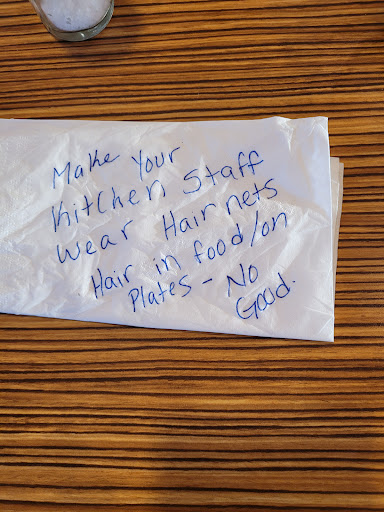 Make Your
Kitchen Staff
Wear Hairnets
Hair in food/on
Plates - No
Good.